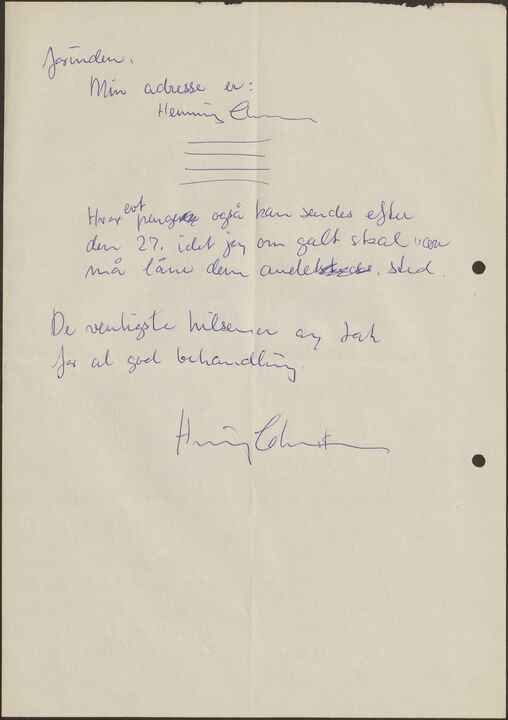 forinden.
Min adresse er:
Henning
Hvor evt pengene også kan sendes efter
den 27. idet jeg om galt skal være
må låne dem andet sted.
De venligste hilsener og tak
for al god behandling.
Henning